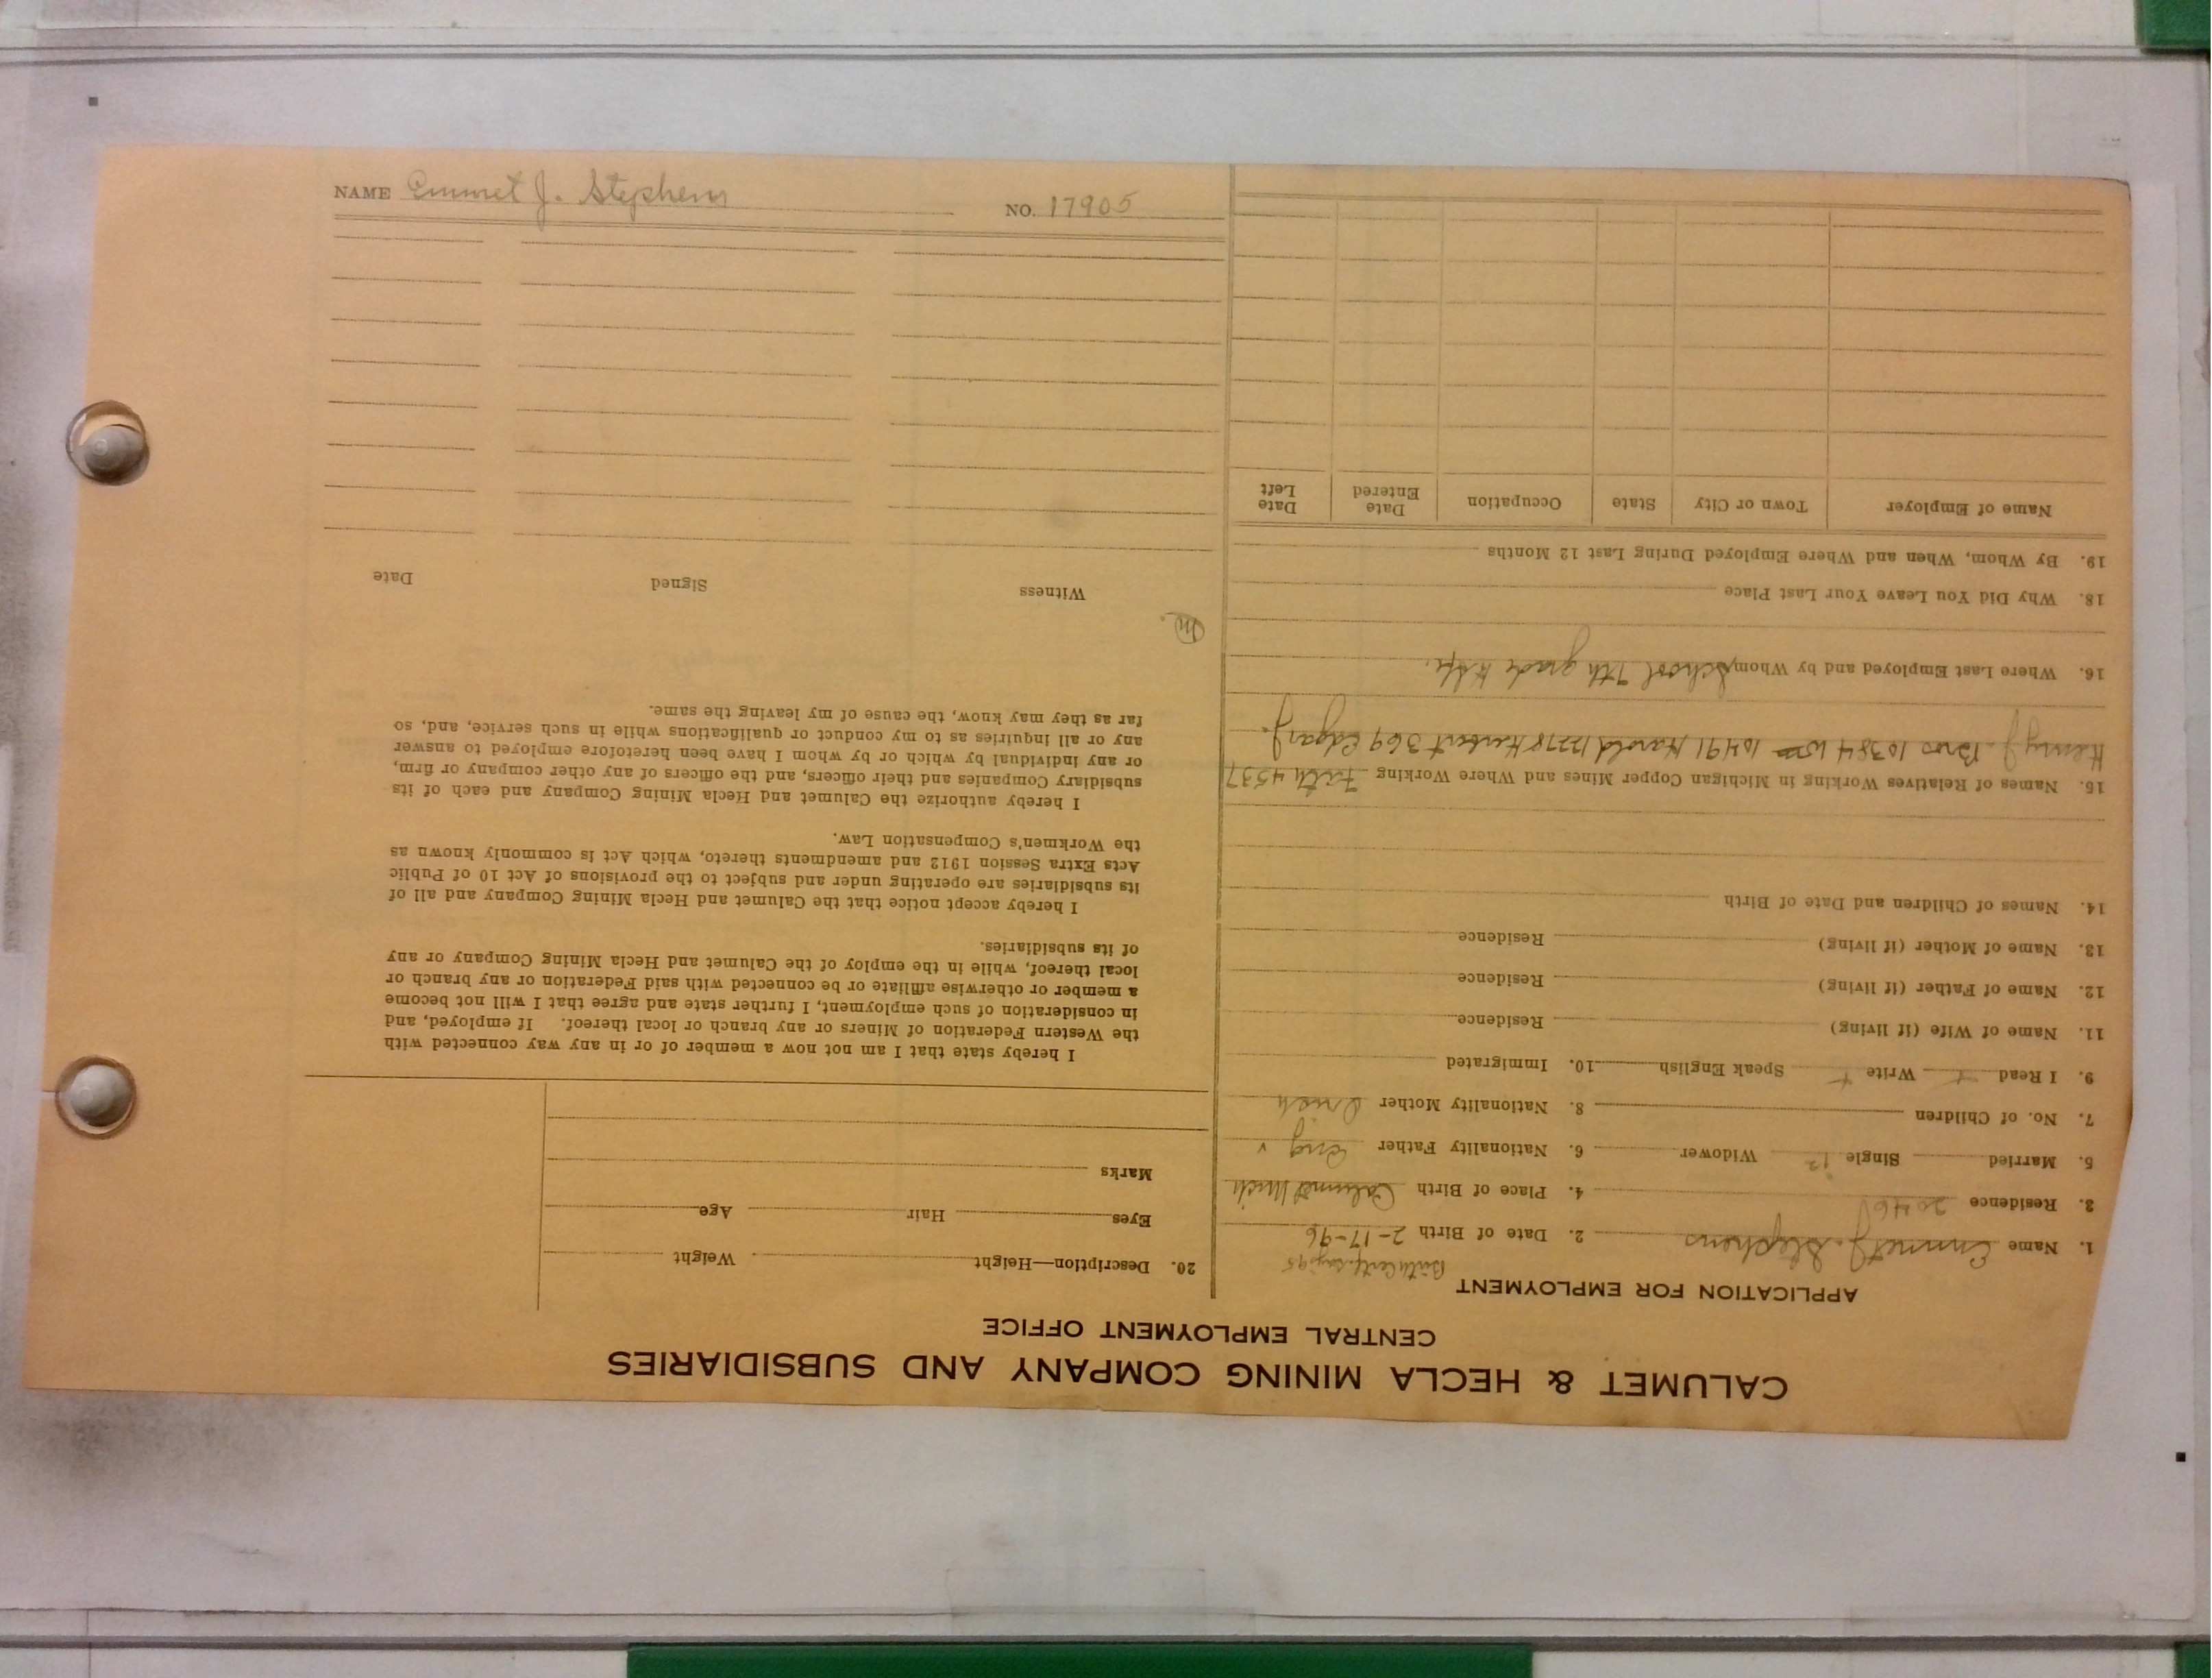 CALUMET & HECLA MINING COMPANY AND SUBSIDIARIES
CENTRAL EMPLOYMENT OFFICE
APPLICATION FOR EMPLOYMENT
Birth Certf. says 95
1. Name Emmet J. Stephens 2. Date of Birth 2-17-96
3. Residence 2046 4. Place of Birth Calumet Mich
5. Married Single Widower 6. Nationality Father Eng
7. No. of Children 8. Nationality Mother Irish
9. I Read Write Speak English 10. Immigrated
11. Name of Wife (if living) Residence
12. Name of Father (if living) Residence
13. Name of Mother (if living) Residence
14. Names of Children and Date of Birth
15. Names of Relatives Working in Michigan Copper Mines and Where Working Fath 4537
Henry J. Bros 10384 Wm 10491 Harold 12278 Herbert 369 Edgar J.
16. Where Last Employed and by Whom School 7th grade
18. Why Did You Leave Your Last Place
19. By Whom, When and Where Employed During Last 12 Months
Name of Employer Town or City State Occupation Date Entered Date Left
20. Description—Height Weight
Eyes Hair Age
Marks
I hereby state that I am not now a member of or in any way connected with
the Western Federation of Miners or any branch or local thereof. If employed, and
in consideration of such employment, I further state and agree that I will not become
a member or otherwise affiliate or be connected with said Federation or any branch or
local thereof, while in the employ of the Calumet and Hecla Mining Company or any
of its subsidiaries.
I hereby accept notice that the Calumet and Hecla Mining Company and all of
its subsidiaries are operating under and subject to the provisions of Act 10 of Public
Acts Extra Session 1912 and amendments thereto, which Act is commonly known as
the Workmen's Compensation Law.
I hereby authorize the Calumet and Hecla Mining Company and each of its
subsidiary Companies and their officers, and the officers of any other company or firm,
or any individual by which or by whom I have been heretofore employed to answer
any or all inquiries as to my conduct or qualifications while in such service, and, so
far as they may know, the cause of my leaving the same.
Witness Signed Date
NAME Emmet J. Stephens NO. 17905